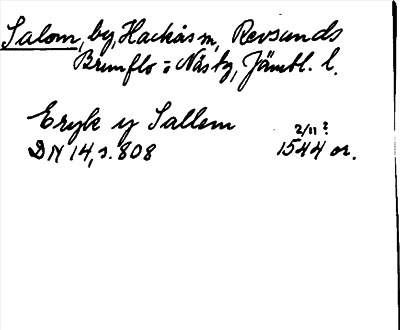 Salom, by, Hackås sn, Revsunds
Brunflo o Näs tg, Jämtl. l.
Eryk y Sallem
2/11 ?
DN 14, s. 808 1544 or.